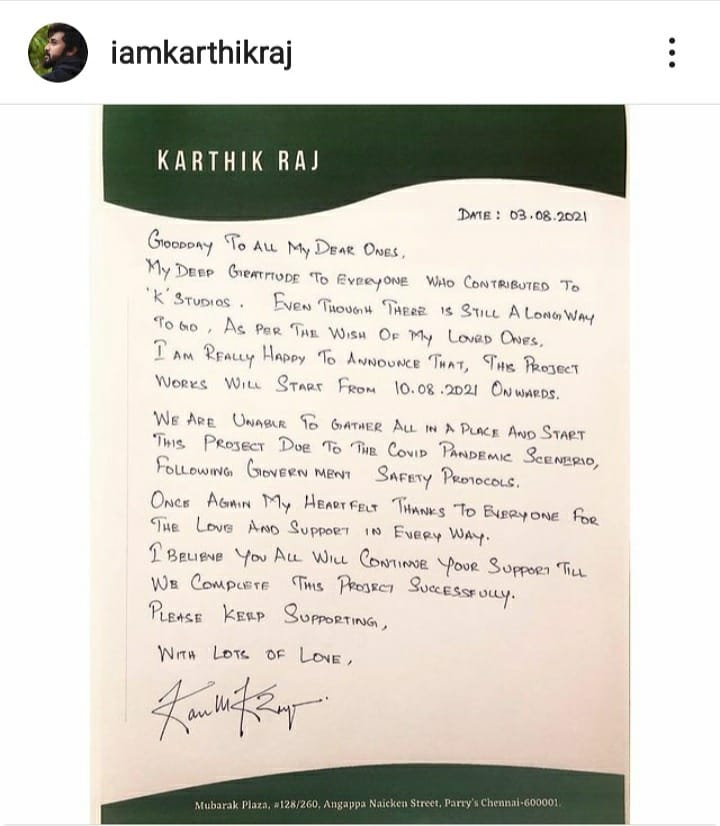 iamkarthikraj
KARTHIK RAJ
DATE : 03.08.2021
GOODDAY TO ALL MY DEAR ONES,
MY DEEP GRATITUDE TO EVERYONE WHO CONTRIBUTED TO
'K' STUDIOS. EVEN THOUGH THERE IS STILL A LONG WAY
TO GO, AS PER THE WISH OF MY LOVED ONES,
I AM REALLY HAPPY TO ANNOUNCE THAT, THIS PROJECT
WORKS WILL START FROM 10.08.2021 ONWARDS.
WE ARE UNABLE TO GATHER ALL IN A PLACE AND START
THIS PROJECT DUE TO THE COVID PANDEMIC SCENERIO,
FOLLOWING GOVERNMENT SAFETY PROTOCOLS.
ONCE AGAIN MY HEARTFELT THANKS TO EVERYONE FOR
THE LOVE AND SUPPORT IN EVERY WAY.
I BELIEVE YOU ALL WILL CONTINUE YOUR SUPPORT TILL
WE COMPLETE THIS PROJECT SUCCESSFULLY.
PLEASE KEEP SUPPORTING,
WITH LOTS OF LOVE,
Mubarak Plaza, #128/260, Angappa Naicken Street, Parry's Chennai-600001.